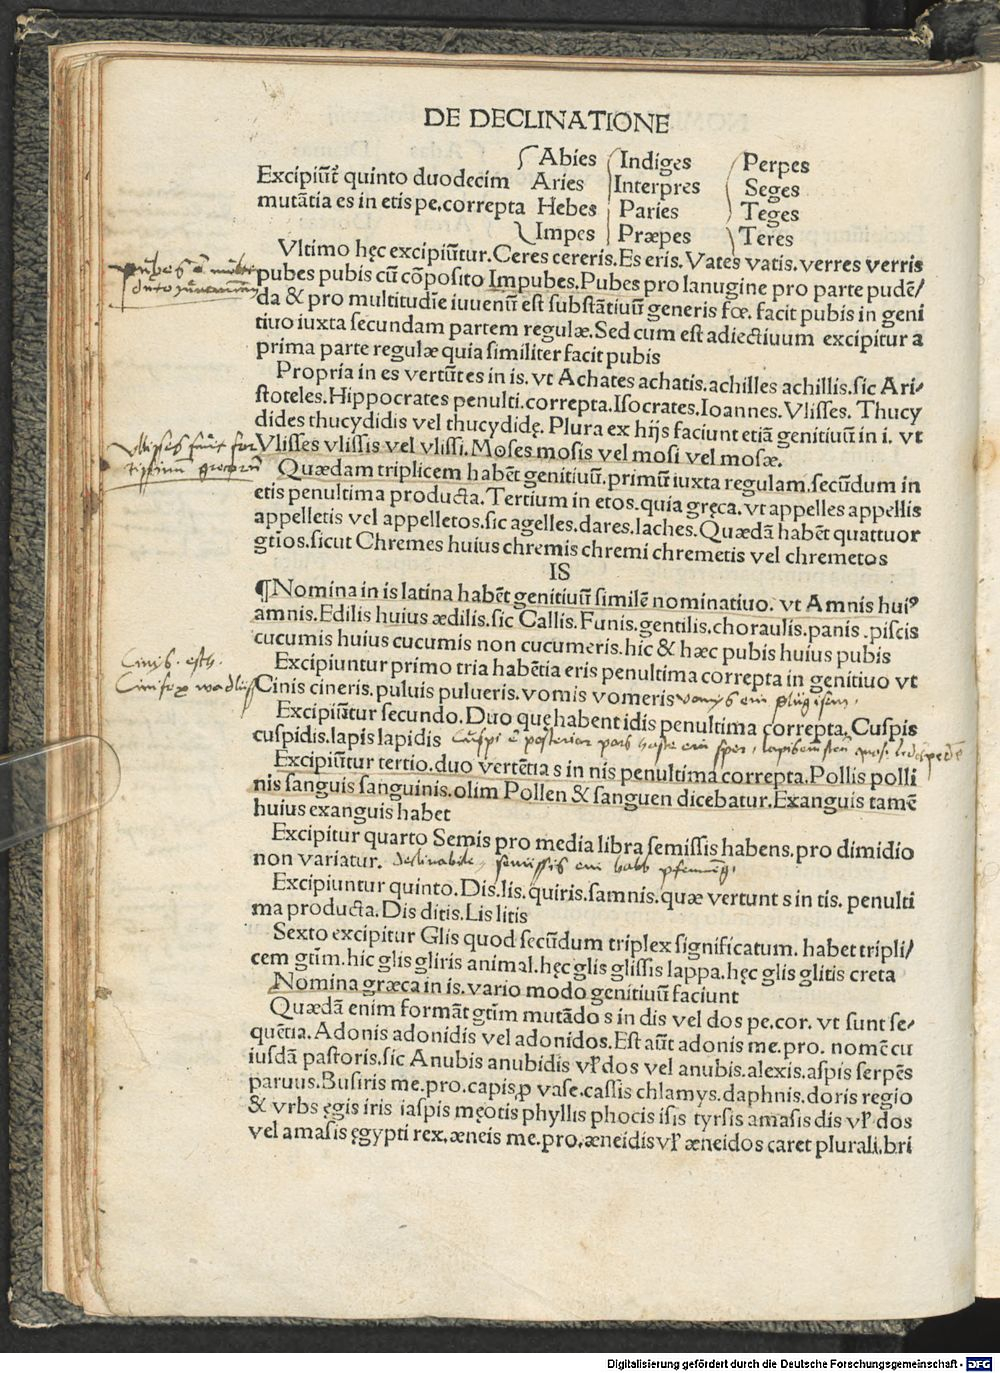 DE DECLINATIONE
Abies Indiges Perpes
Excipiūt̄ quinto duodecim Aries Interpres Seges
mutātia es in etis pe, correpta Hebes Paries Teges
Impes Præpes Teres
Vltimo hęc excipiūtur. Ceres cereris. Es eris. Vates vatis. verres verris
pubes pubis cū cōposito Impubes. Pubes pro lanugine pro parte pudē/
da & pro multitudīe iuuenū est substātiuū generis fœ. facit pubis in geni
tiuo iuxta secundam partem regulæ. Sed cum est adiectiuum excipitur a
prima parte regulæ quia similiter facit pubis
Propria in es vertūt es in is. vt Achates achatis. achilles achillis. sic Ari/
stoteles. Hippocrates penulti. correpta. Isocrates. Ioannes. Vlisses. Thucy
dides thucydidis vel thucydidę. Plura ex hijs faciunt etiā genitiuū in i. vt
Vlisses vlissis vel vlissi. Moses mosis vel mosi vel mosæ.
Quædam triplicem habēt genitiuū. primū iuxta regulam. secūdum in
etis penultima producta. Tertium in etos. quia gręca. vt appelles appellis
appelletis vel appelletos. sic agelles. dares. laches. Quædā habēt quattuor
gtīos. sicut Chremes huius chremis chremi chremetis vel chremetos
IS
¶Nomina in is latina habēt genitiuū similē nominatiuo. vt Amnis huiꝰ
amnis. Edilis huius ædilis. sic Callis. Funis. gentilis. choraulis. panis. piscis
cucumis huius cucumis non cucumeris. hic & hæc pubis huius pubis
Excipiuntur primo tria habētia eris penultima correpta in genitiuo vt
Cinis cineris. puluis pulueris. vomis vomeris
Excipiūtur secundo. Duo quę habent idis penultima correpta. Cuspis
cuspidis. lapis lapidis
Excipiūtur tertio. duo vertētia s in nis penultima correpta. Pollis polli
nis sanguis sanguinis. olim Pollen & sanguen dicebatur. Exanguis tamē
huius exanguis habet
Excipitur quarto Semis pro media libra semissis habens. pro dimidio
non variatur.
Excipiuntur quinto. Dis. lis. quiris. samnis. quæ vertunt s in tis. penulti
ma producta. Dis ditis. Lis litis
Sexto excipitur Glis quod secūdum triplex significatum. habet tripli/
cem gtīm. hic glis gliris animal. hęc glis glissis lappa. hęc glis glitis creta
Nomina græca in is. vario modo genitiuū faciunt
Quædā enim formāt gtīm mutādo s in dis vel dos pe. cor. vt sunt se/
quētia. Adonis adonidis vel adonidos. Est aūt adonis me. pro. nomē cu
iusdā pastoris. sic Anubis anubidis vꝉ dos vel anubis. alexis. aspis serpēs
paruus. Busiris me. pro. capis ꝓ vase. cassis chlamys. daphnis. doris regio
& vrbs ęgis iris iaspis męotis phyllis phocis isis tyrsis amasis dis vꝉ dos
vel amasis ęgypti rex. æneis me. pro. æneidis vꝉ æneidos caret plurali. bri
Digitalisierung gefördert durch die Deutsche Forschungsgemeinschaft - DFG